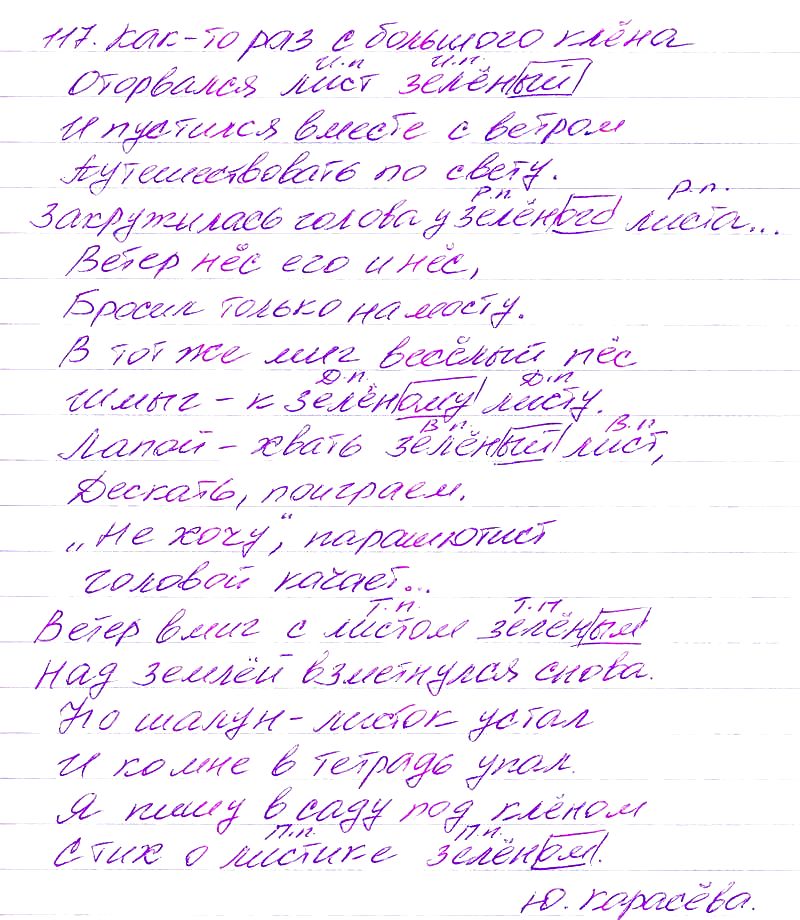 117. Как-то раз с большого клёна
И.п. И.п.
Оторвался лист зелёный
И пустился вместе с ветром
Путешествовать по свету.
Р.п. Р.п.
Закружилась голова у зелёного листа...
Ветер нёс его и нёс,
Бросил только на мосту.
В тот же миг весёлый пёс
Д.п. Д.п.
Шмыг – к зелёному листу.
В.п. В.п.
Лапой – хвать зелёный лист,
Дескать, поиграем.
„Не хочу“, парашютист
головой качает...
Т.п. Т.п.
Ветер вмиг с листом зелёным
Над землёй взметнулся снова.
Но шалун-листок устал
И ко мне в тетрадь упал.
Я пишу в саду под клёном
П.п. П.п.
Стих о листике зелёном.
Ю. Карасёва.